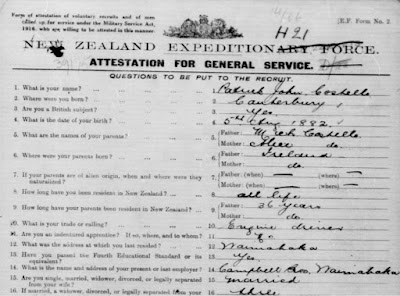 Form of attestation of voluntary recruits and of men
called up for service under the Military Service Act,
1916, who are willing to be attested in this manner.
[E.F. Form No. 2.
H 21
NEW ZEALAND EXPEDITIONARY FORCE.
ATTESTATION FOR GENERAL SERVICE.
QUESTIONS TO BE PUT TO THE RECRUIT.
1. What is your name? ... 1 Patrick John Costello
2. Where were you born? ... 2 Canterbury
3. Are you a British subject? ... 3 Yes
4. What is the date of your birth? ... 4 5th Aug 1882.
5. What are the names of your parents? ... 5 Father: Mich Costello
Mother: do.
6. Where were your parents born? ... 6 Father: Ireland
Mother: do
7. If your parents are of alien origin, when and where were they naturalized? 7 Father: (when) — (where) —
Mother: (when) — (where) —
8. How long have you been resident in New Zealand? ... 8 all life
9. How long have your parents been resident in New Zealand? ... 9 Father: 36 years
Mother: do.
10. What is your trade or calling? ... 10 Engine driver
11. Are you an indentured apprentice? If so, where, and to whom? 11
12. What was the address at which you last resided? ... 12 Waimahaka
13. Have you passed the Fourth Educational Standard or its equivalent? 13 Yes.
14. What is the name and address of your present or last employer? 14 Campbell Bros, Waimahaka
15. Are you single, married, widower, divorced, or legally separated from your wife? 15 married
16. If married, a widower, divorced, or legally separated from your 16 three